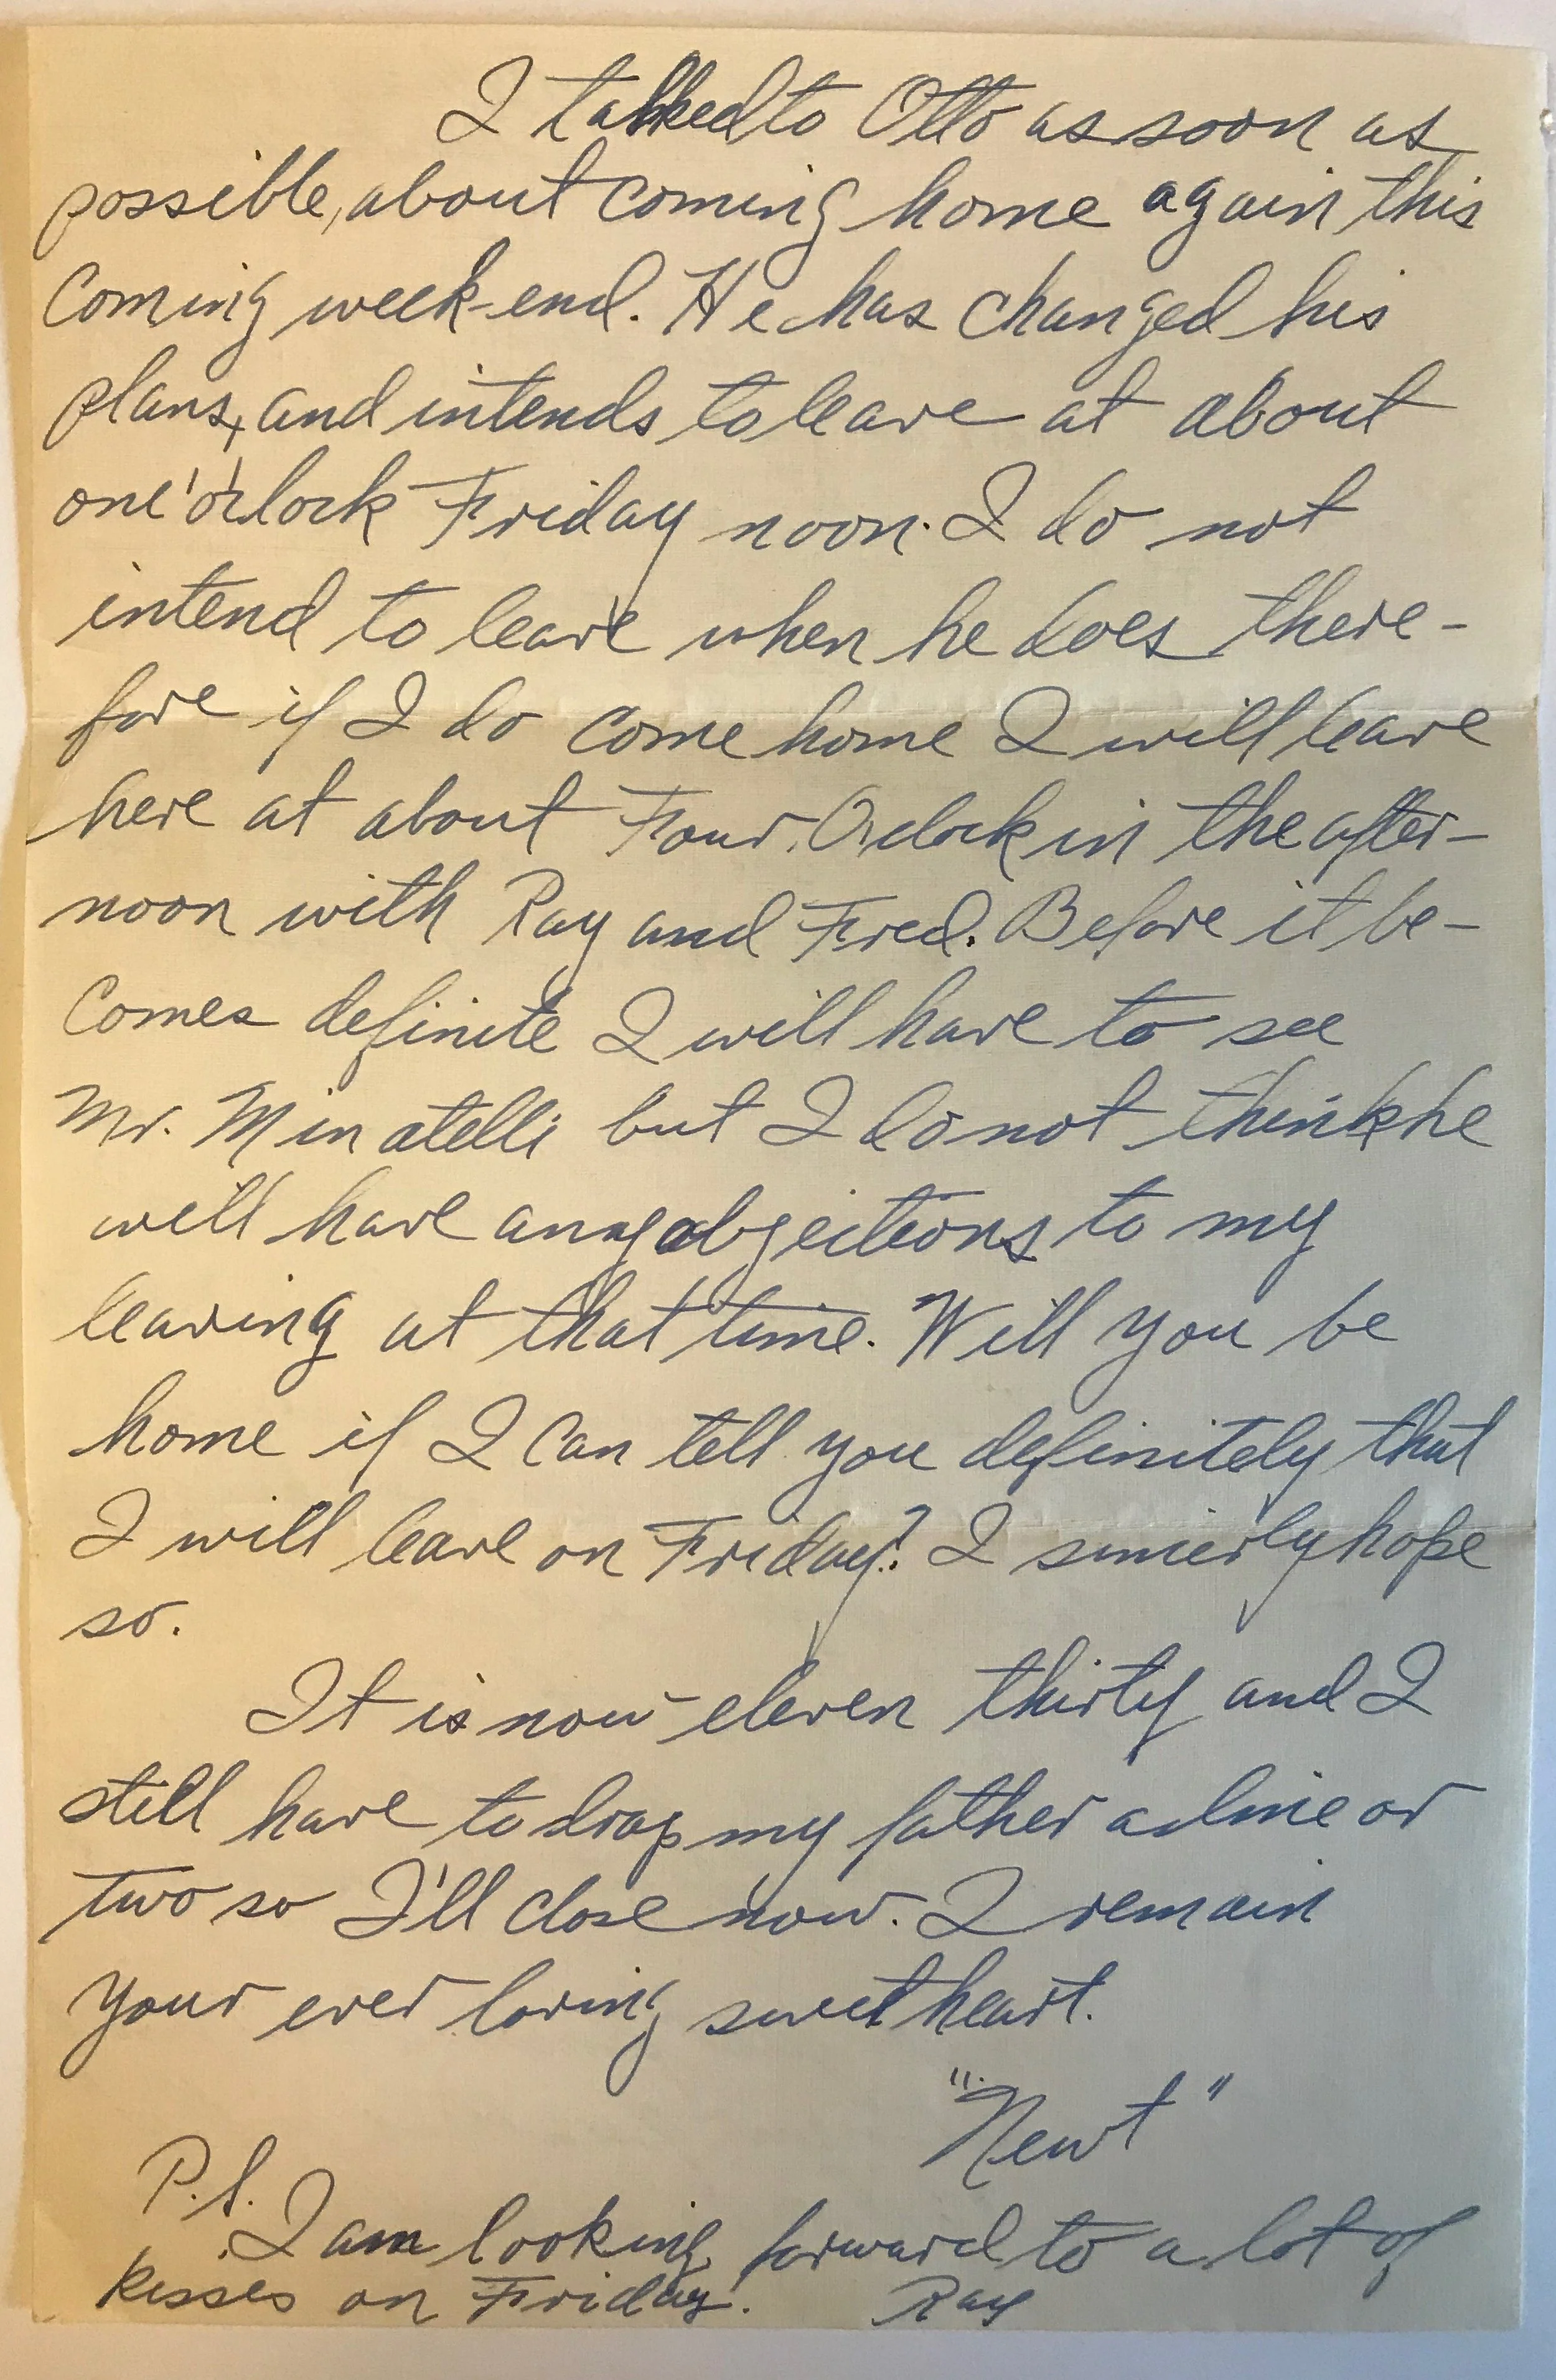 I talked to Otto as soon as
possible, about coming home again this
coming week-end. He has changed his
plans, and intends to leave at about
one'o'clock Friday noon. I do not
intend to leave when he does there-
fore if I do come home I will leave
here at about Four O'clock in the after-
noon with Ray and Fred. Before it be-
comes definite I will have to see
Mr. Minatelli but I do not think he
will have any objections to my
leaving at that time. Will you be
home if I can tell you definitely that
I will leave on Friday? I sincerly hope
so.
It is now eleven thirty and I
still have to drop my father a line or
two so I'll close now. I remain
your ever loving sweetheart.
"Newt"
P.S.
I am looking forward to a lot of
kisses on Friday. Ray